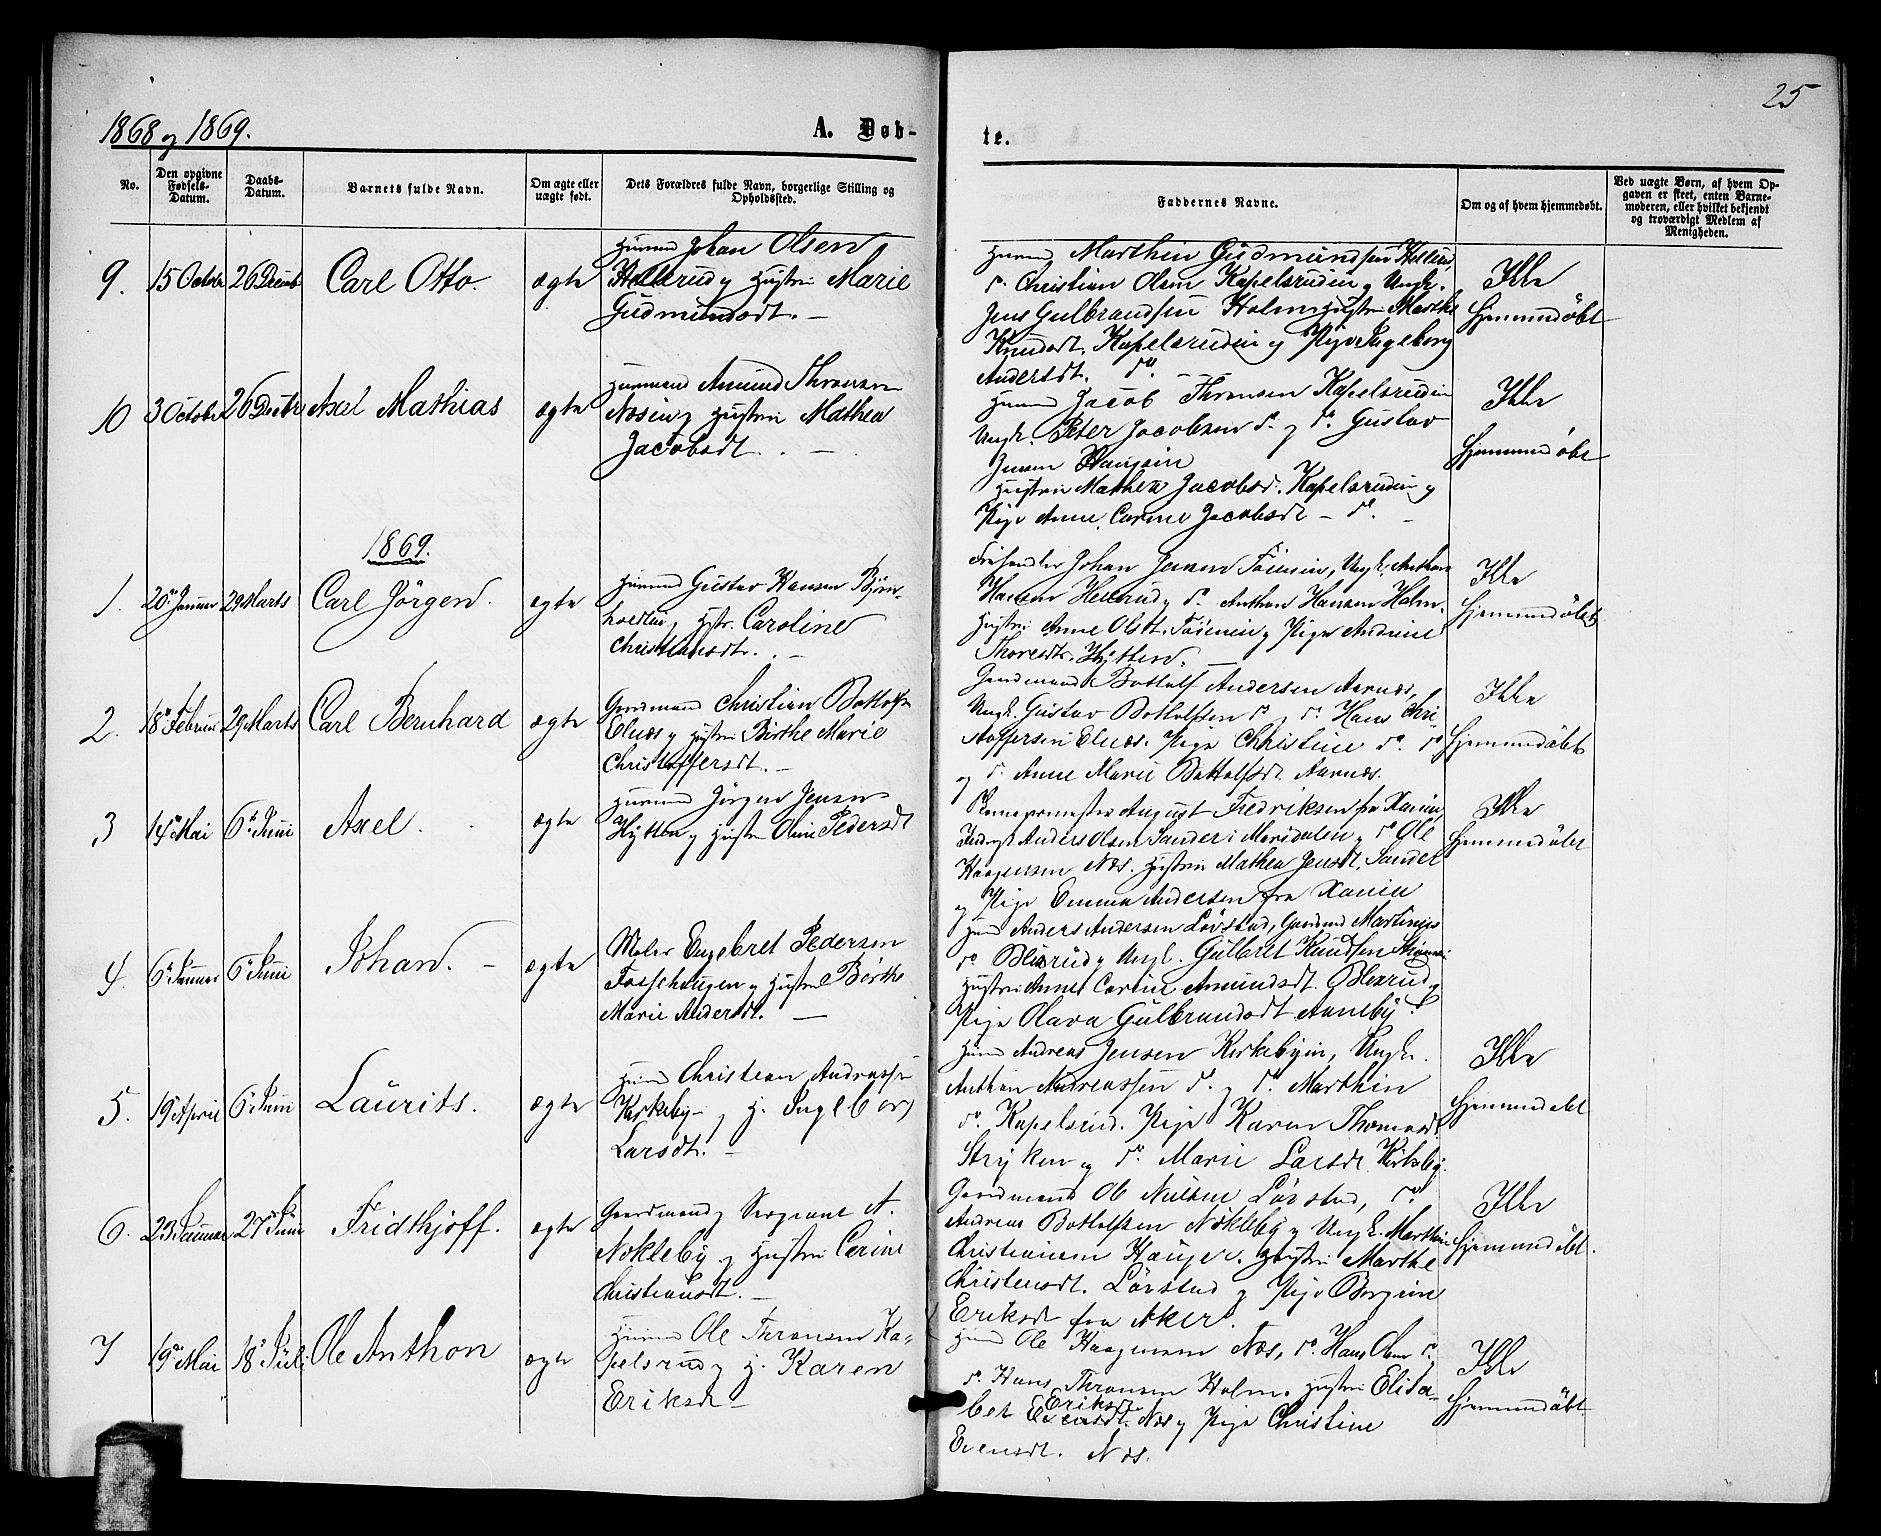 25
1868 og 1869.
A. Døb-
te.
No.
Den opgivne Fødsels-Datum.
Daabs-Datum.
Barnets fulde Navn.
Om ægte eller uægte født.
Dets Forældres fulde Navn, borgerlige Stilling og Opholdssted.
Faddernes Navne.
Om og af hvem hjemmedøbt.
Ved uægte Børn, af hvem Opgaven er skeet, enten Barnemoderen, eller hvilket bekjendt og troværdigt Medlem af Menigheden.
9. 15 October 26 Decemb Carl Otto. ægte
Huusmd Johan Olsen
Hellerud og Hustru Marie
Gudmundsdt. —
Huusmd Marthin Gudmundsen Hellerud,
do. Christian Olsen Kapelsrudein og Ungk.
Jens Gulbrandsen Holm Hustru Marthe
Knudsdt. Kapelsrudein og Pige Ingeborg
Andersdt. do.
Ikke
Hjemmedøbt
10 3 October 26 Decbr Axel Mathias ægte
Huusmand Amund Thronsen
Nosein og Hustru Mathea
Jacobsdt. —
Huusmd Jacob Thronsen Kapelsrudein
Ungk. Peter Jacobsen do. og do. Gustav
Jensen Haugein
Hustru Mathea Jacobsd. Kapelsrudein og
Pige Anne Carine Jacobsdt — do. —
Ikke
Hjemmedøbt
1869.
1. 20de Januar 29 Marts Carl Jörgen. ægte
Huusmd Gustav Hansen Björn-
holdten og Hstr. Caroline
Christiansdt. —
Johan Jensen Ungk. Anthon
Hansen Hellerud og do. Anthon Hansen Holm.
Hustru Anne Olsdt. og Pige Andrine
Thoresdtr. Hytten. —
Ikke
Hjemmedøbt
2. 18de Februar 29 Marts Carl Bernhard ægte
Gaardmand Christian Bottolfsen
Elnæs og Hustru Birthe Marie
Christoffersdt. —
Gaardmand Bottolf Andersen Aarnæs,
Ungk. Gustav Bottolfsen do. og do. Hans Chri-
stoffersen Elnæs. Pige Christine do. do
og do. Anne Marie Bottolfsdt. Aarnæs.
Ikke
Hjemmedøbt
3 14de Mai 6te Juni Axel. ægte
Huusmd Jörgen Jensen
Hytten og Hustru Oline Pedersdt
August Fredriksen fra Xania,
Anders Olsen Sander i Marsdalen og do Ole
Haagensen Næs. Hustru Mathea Jensdt. Sander
og Pige Emma Andersen fra Xania
Ikke
Hjemmedøbt
4. 6te Januar 6te Juni Johan. — ægte
Maler Engebret Pedersen
Fossehaugen og Hustru Börthe
Marie Andersdt. —
Huusmd Anders Andersen Lövstad, Gaardmd Martinus
do Blixrud og Ungk. Gulbret Knudsen
Hustru Anne Carine Amundsdt. Blixrud og
Pige Olava Gulbrandsdt Aaneby.
5. 19de April 6te Juni Laurits. ægte
Huusmd Christian Andreassen
Kirkeby — og H. Ingeborg
Larsdt. —
Huusmd Andreas Jensen Kirkebyein, Ungk.
Anthon Andreassen do. og do. Marthin
do. Kapelsrud. Pige Karen Thomasdt.
Stryken og do. Marie Larsdt. Kirkeby.
Ikke
Hjemmedøbt
6. 23 Januar 27de Juni Fridthjoff. ægte
Gaardmand og Sergeant A.
Nökleby og Hustru Cerine
Christiansdt. —
Gaardmand Ole Nielsen Lövstad, do.
Andreas Bottolfsen Nökleby og Ungk. Marthin
Christiansen Haugen. Hustru Marthe
Christensdt. Lövstad og Pige Bergine
Eriksdt fra Aker.
Ikke
Hjemmedøbt.
7 19de Mai 18de Juli Ole Anthon ægte
Huusmd Ole Thronsen Ka-
pelsrud og H. Karen
Eriksdt —
Huusmd Ole Haagensen Næs, do. Hans Olsen do.
do. Hans Thronsen Holm. Hustru Elisa-
bet Eriksdt Evensdt. Næs og Pige Christine
Evensdt. Næs.
Ikke
Hjemmedøbt.